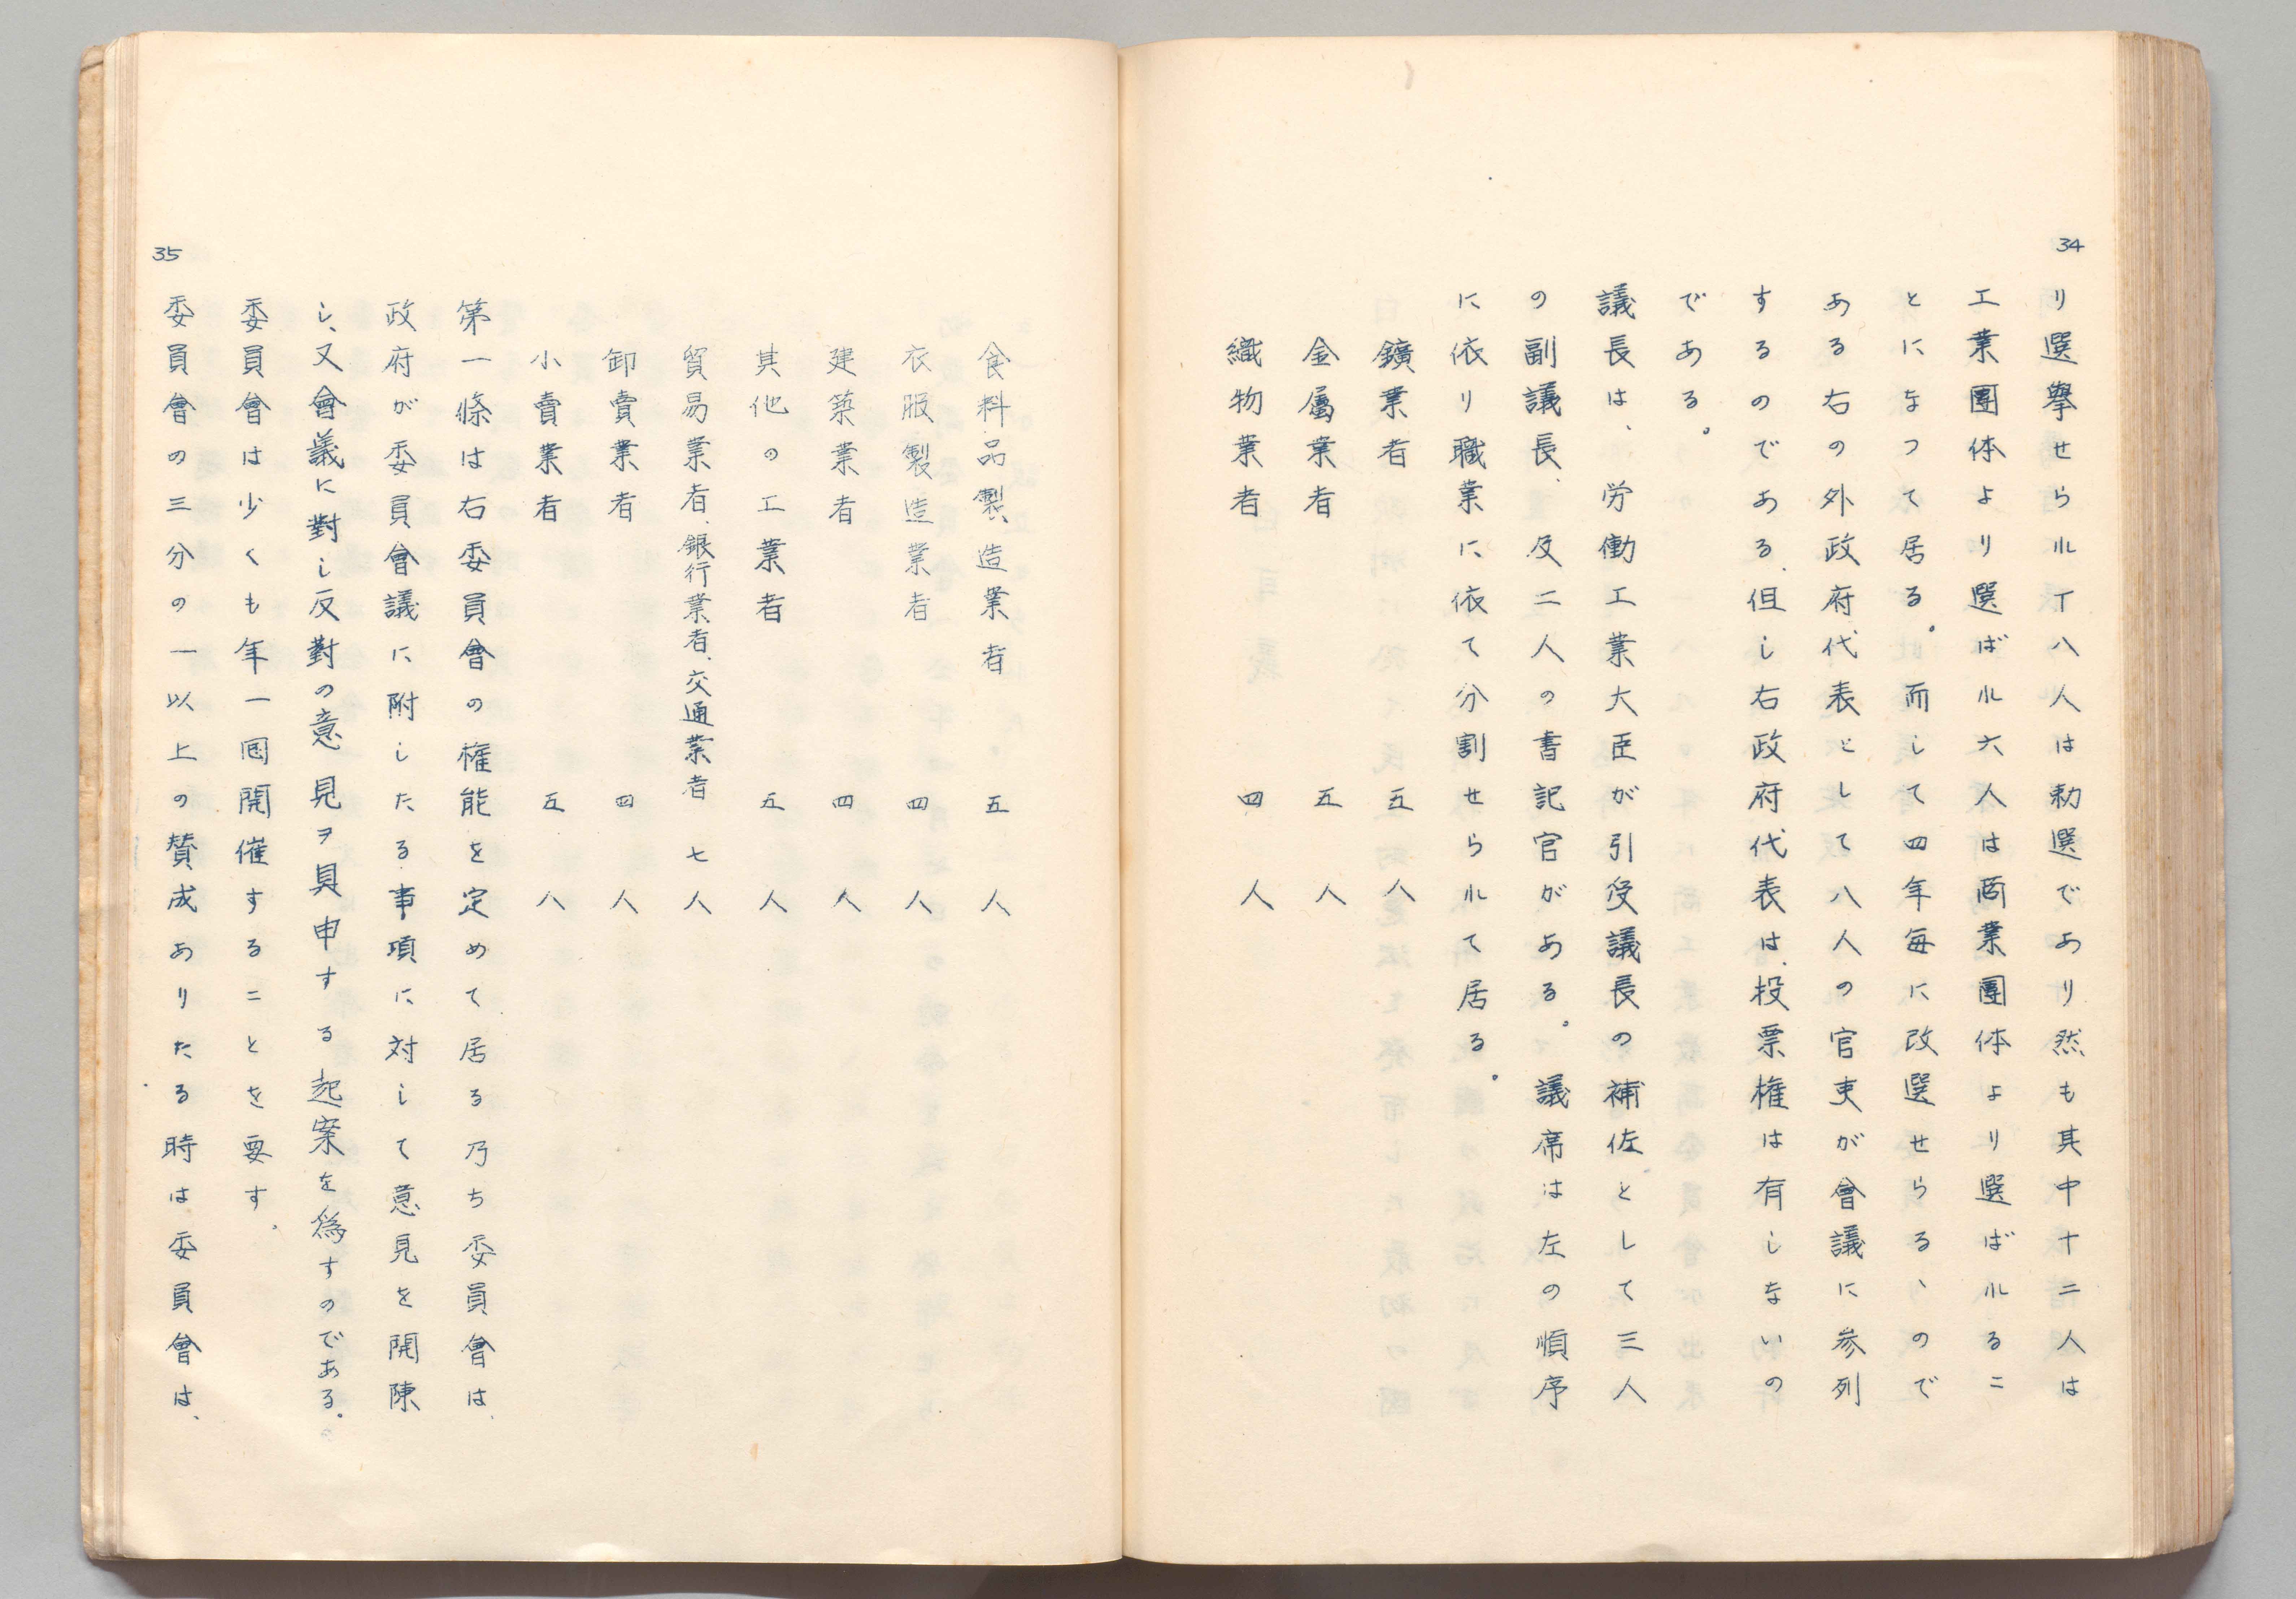 34
リ選擧せらル丁八人は勅選であり然も其中十二人は
工業團体より選ばル六人は商業團体より選ばルるこ
とになつて居る。而して四年毎に改選せらるゝので
ある右の外政府代表として八人の官吏が會議に参列
するのである、但し右政府代表は、投票権は有しないの
である。
議長は、労働工業大臣が引受議長の補佐として三人
の副議長、及二人の書記官がある。議席は左の順序
に依り職業に依て分割せらルて居る。
鑛業者 五人
金属業者 五人
織物業者 四人
食料品製造業者 五人
衣服製造業者 四人
建築業者 四人
其他の工業者 五人
貿易業者、銀行業者、交通業者 七人
卸賣業者 四人
小賣業者 五人
第一條は右委員會の権能を定めて居る乃ち委員會は、
政府が委員會議に附したる事項に対して意見を開陳
し、又會議に對し反對の意見ヲ具申する起案を為すのである。
委員會は少くも年一囘開催することを要す。
35
委員會の三分の一以上の賛成ありたる時は委員會は、